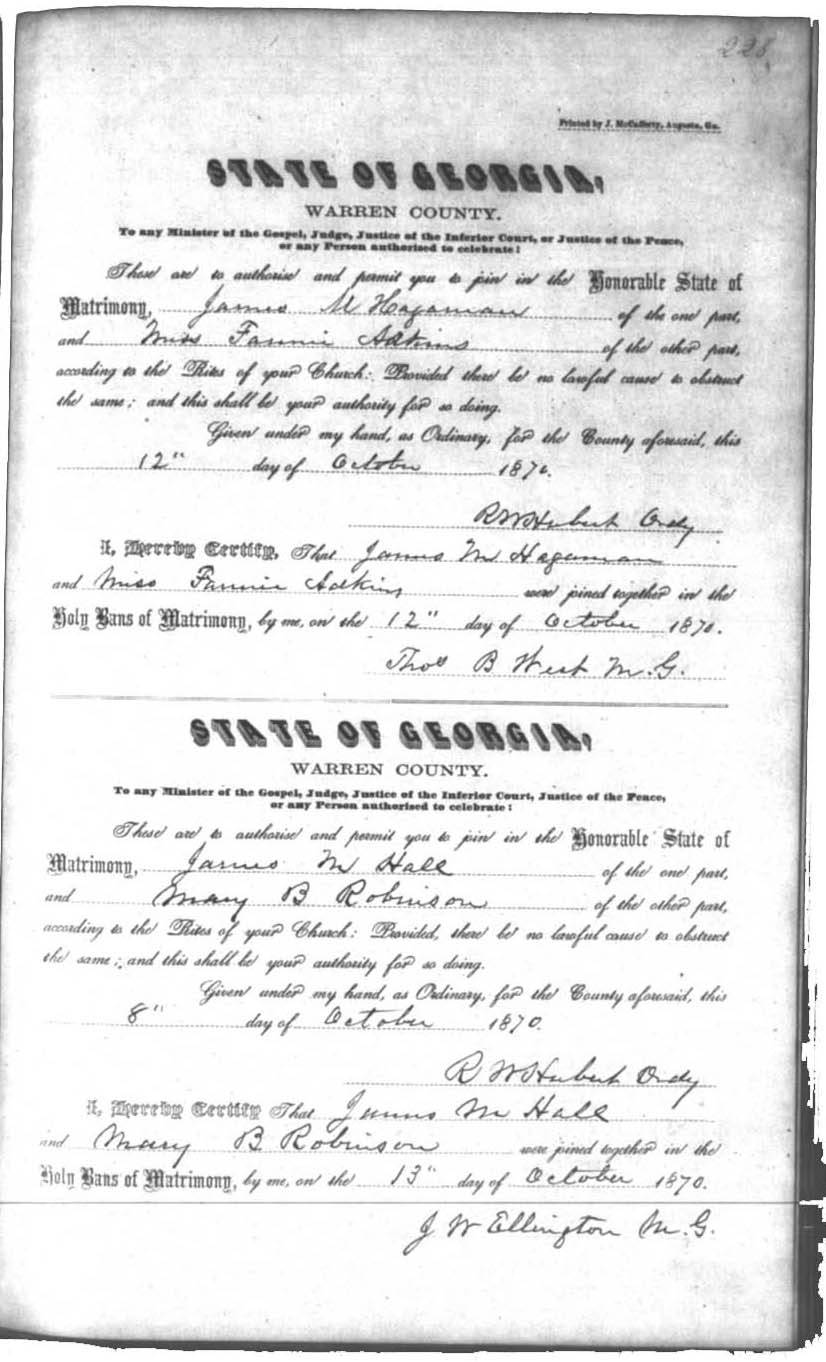 228
Printed by J. McCafferty, Augusta, Ga.
STATE OF GEORGIA,
WARREN COUNTY.
To any Minister of the Gospel, Judge, Justice of the Inferior Court, or Justice of the Peace,
or any Person authorised to celebrate:
These are to authorise and permit you to join in the Honorable State of
Matrimony, James M Hagaman of the one part,
and Miss Fannie Adkins of the other part,
according to the Rites of your Church: Provided there be no lawful cause to obstruct
the same; and this shall be your authority for so doing.
Given under my hand, as Ordinary, for the County aforesaid, this
12" day of October 1870.
R W Hubert Ordy
I, Hereby Certify, That James M Hagaman
and Miss Fannie Adkins were joined together in the
Holy Bans of Matrimony, by me, on the 12" day of October 1870.
Thos B West M.G.
STATE OF GEORGIA,
WARREN COUNTY.
To any Minister of the Gospel, Judge, Justice of the Inferior Court, Justice of the Peace,
or any Person authorised to celebrate:
These are to authorise and permit you to join in the Honorable State of
Matrimony, James M Hall of the one part,
and Mary B Robinson of the other part,
according to the Rites of your Church: Provided, there be no lawful cause to obstruct
the same; and this shall be your authority for so doing.
Given under my hand, as Ordinary, for the County aforesaid, this
8" day of October 1870.
R W Hubert Ordy
I, Hereby Certify That James M Hall
and Mary B Robinson were joined together in the
Holy Bans of Matrimony, by me, on the 13" day of October 1870.
J W Ellington M.G.